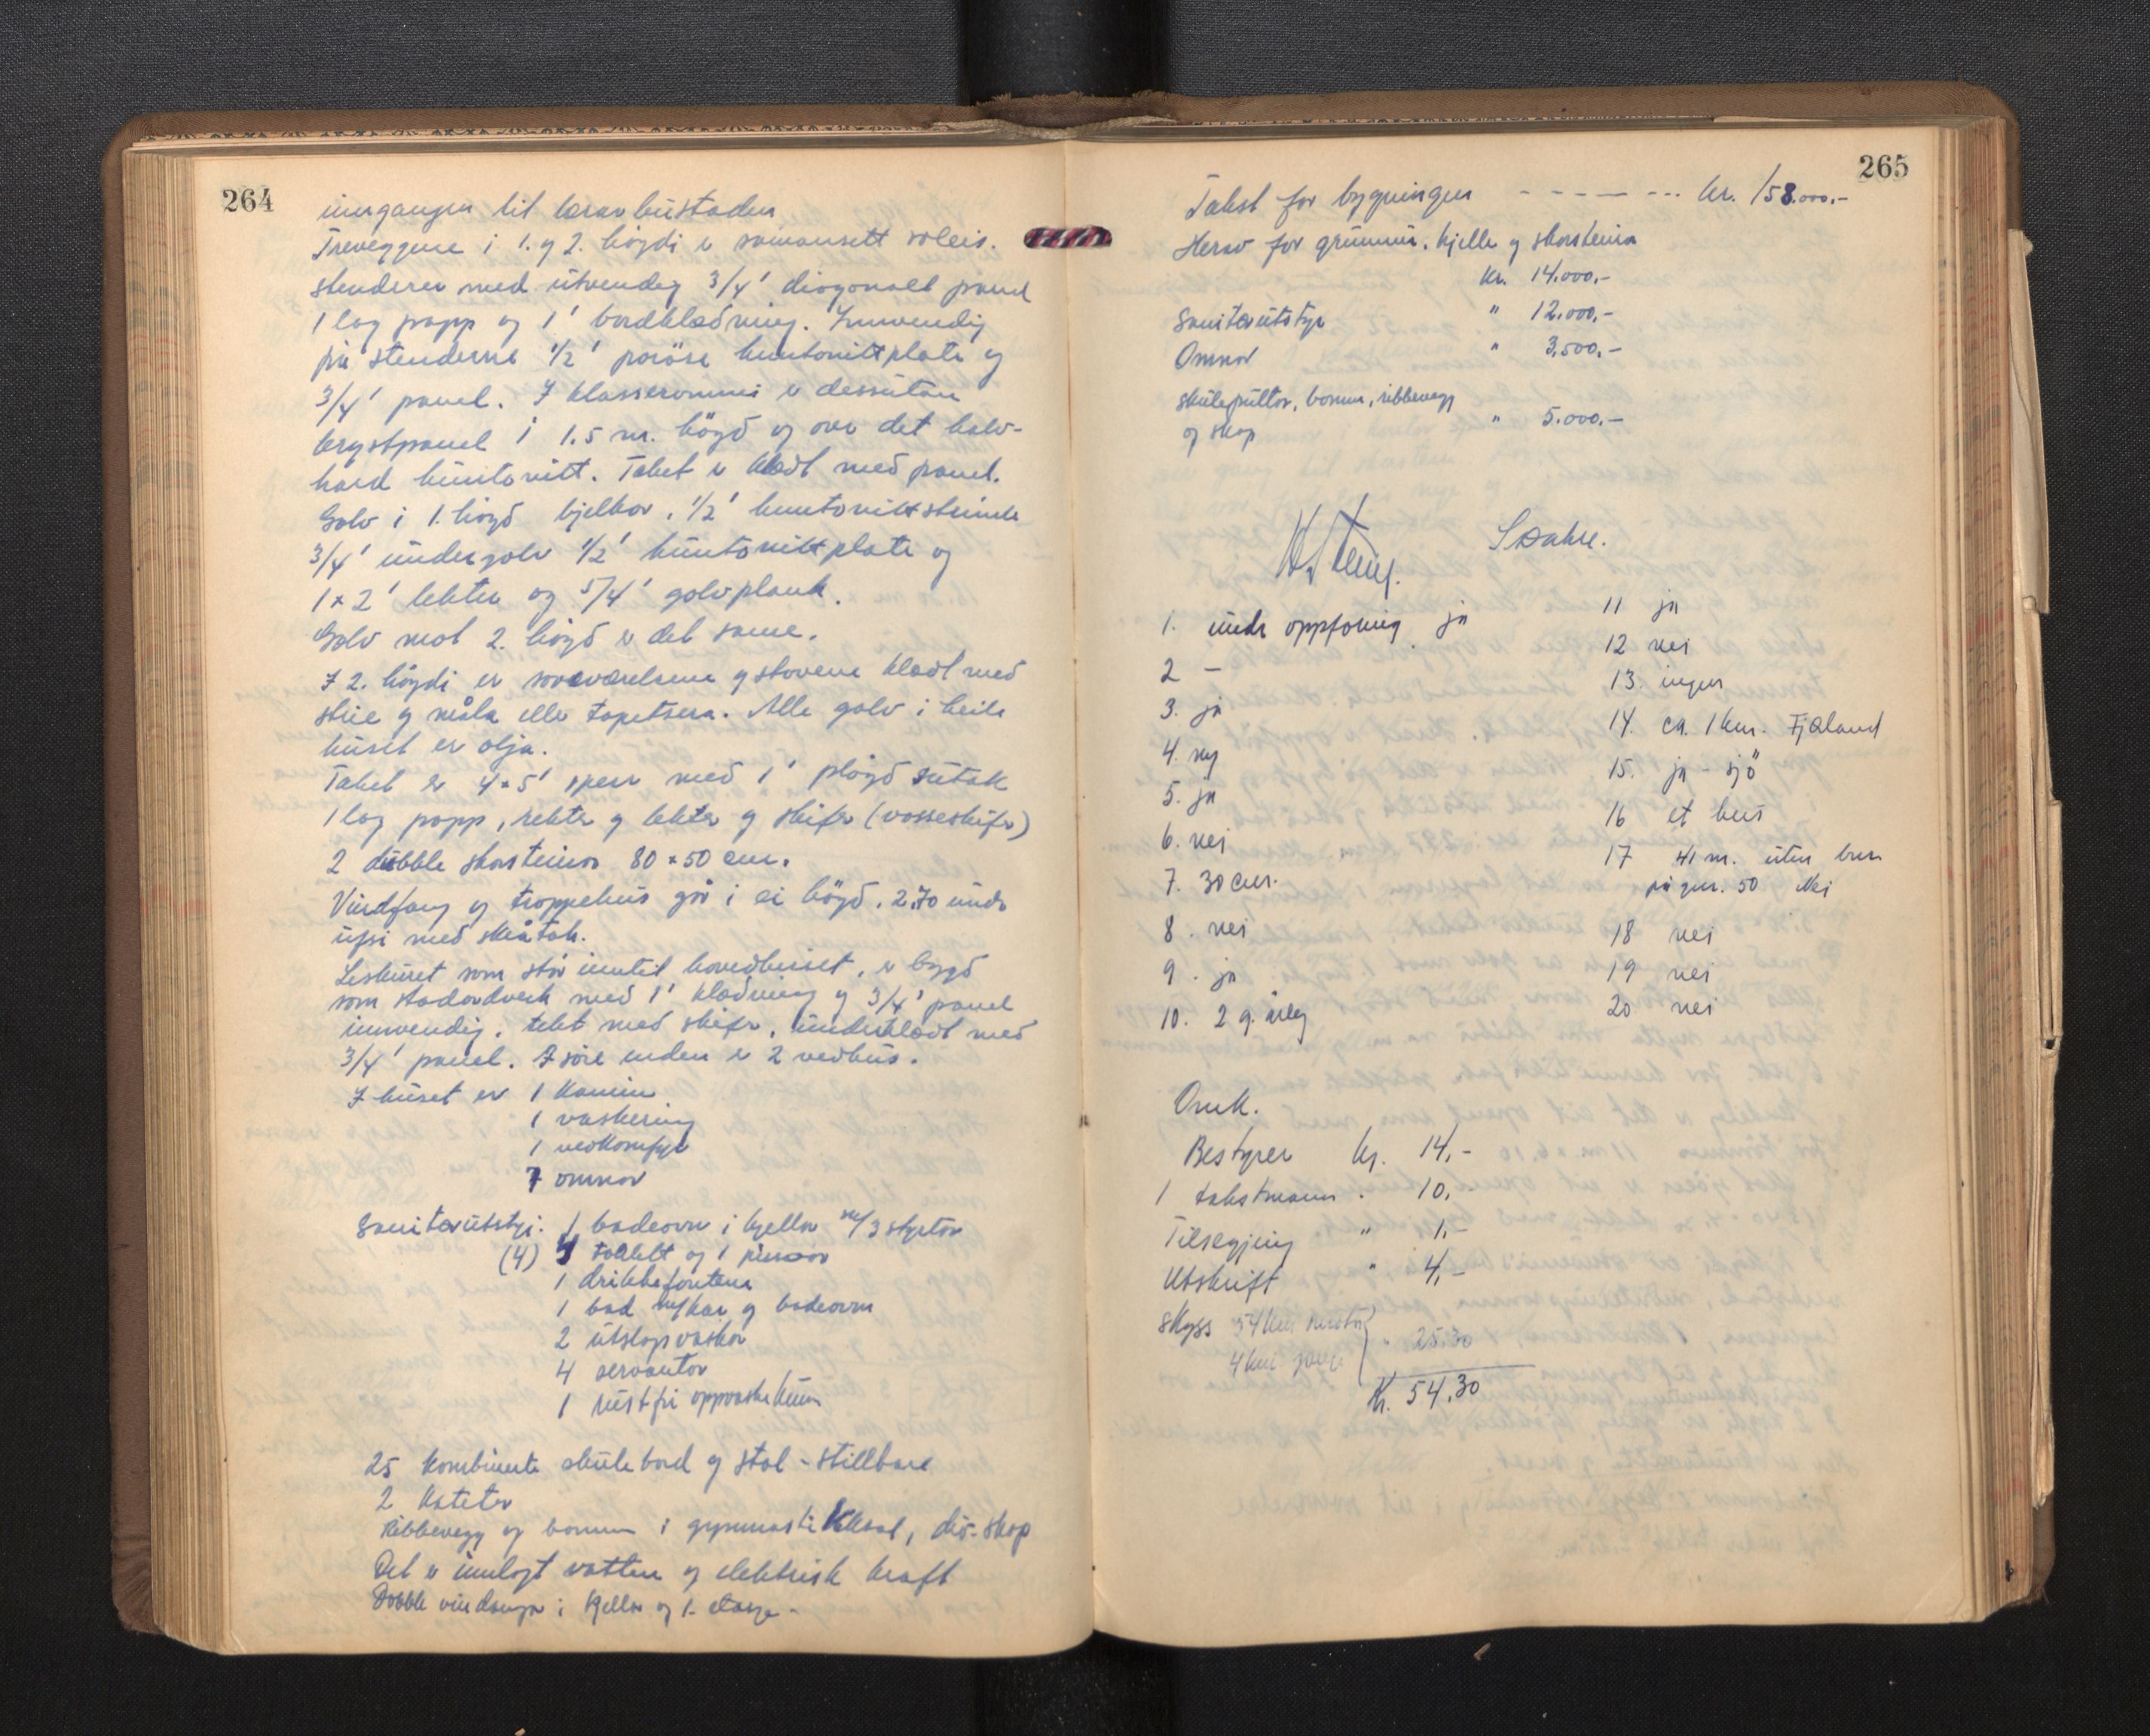 264
inngangen til lærarbustaden
Treveggene i 1. og 2. högdi er samansett soleis.
stenderer med utvendig 3/4' diagonalt panel
1 lag papp og 1' bordklædning. Innvendig
på stenderne 1/2' poröse huntonittplate og
3/4' panel. I klasseromma er dessutan
brystpanel i 1.5 m. högd og over det halv-
hard huntonitt. Taket er klædt med panel.
Golv i 1. högd bjelkar, 1/2' huntonitt
3/4' undergolv 1/2' huntonittplate og
1 x 2' lekter og 5/4' golvplank.
Golv mot 2. högd er det same.
I 2. högdi er soveværelsene og stovene klædt med
strie og måla eller tapetsera. Alle golv i heile
huset er olja.
Taket er 4 x 5' sperr med 1' pløgd sutak
1 lag papp, rekter og lekter og skifer (vosseskifer)
2 dubble skorsteinar 80 x 50 cm.
Vindfang og troppehus går i ei högd. 2,70 under
upsi med skråtak.
Leskuret som står inntil hovedhuset, er bygd
som stavardverk med 1' klædning og 3/4' panel
innvendig. tekt med skifer, underklædt med
3/4' panel. I söre enden er 2 vedhus.
I huset er 1 kamin
1 vaskering
1 vedkomfyr
7 omnar
Saniterutstyr. 1 badeovn i kjellar m/3 styrtar
(4) 4 toalett og 1 pissoar
1 drikkefontene
1 bad m/kar og badeovn
2 utslagsvaskar
4 servantar
1 rustfri oppvaskkum
25 kombinerte skulebord og stol - stillbare
2 kateter
Ribbevegg og bommer i gymnastikksal, div. skap
Det er innlagt vatten og elektrisk kraft
Dobble vindauger i kjellar og 1. etasje -
265
Takst for bygningen - - - - - - - kr. 158.000.-
Herav for grunnmur, kjeller og skorsteinar
kr. 14.000,-
Saniterutstyr " 12.000,-
Omnar " 3,500,-
skulepultar, bommer, ribbevegg
og skap " 5.000,-
1. under oppföring ja
2 -
3. ja
4. ny
5. ja
6. nei
7. 30 cm.
8. nei
9. ja
10. 2 g. årleg
11 ja
12 nei
13. ingen
14. ca. 1 km. Fjæland
15. ja - sjö
16 et hus
17 41 m. uten brn
på gnr. 50 Nei
18 nei
19 nei
20 nei
Omk.
Bestyrer kr. 14,-
1 takstmann " 10,-
Tilsegjing " 1,-
Utskrift " 4,-
Skyss 54 km " 25.30
4 km
Kr. 54,30